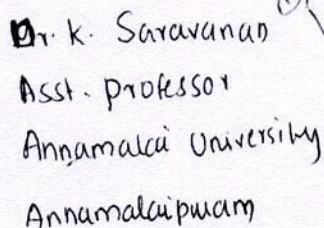 Dr. K. Saravanan
Asst. professor
Annamalai University
Annamalaipuram